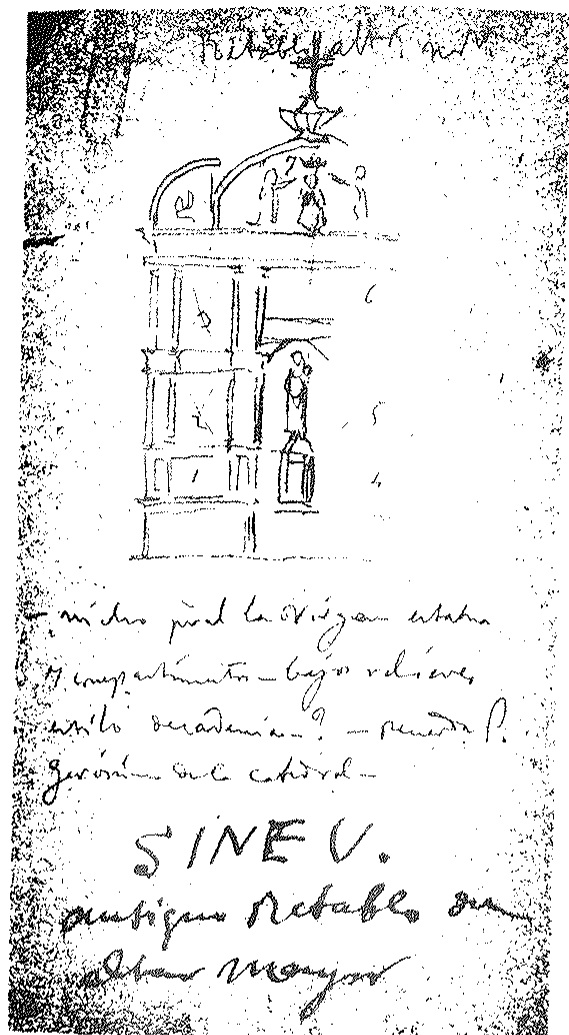 Retablo
7
6
5
4
1
nicho pral la Virgen estatua
7 compartimentos - bajos relieves
estilo decadencia -? - recuerda P.
Gerónimo de la catedral -
SINEU.
antiguo Retablo
altar mayor